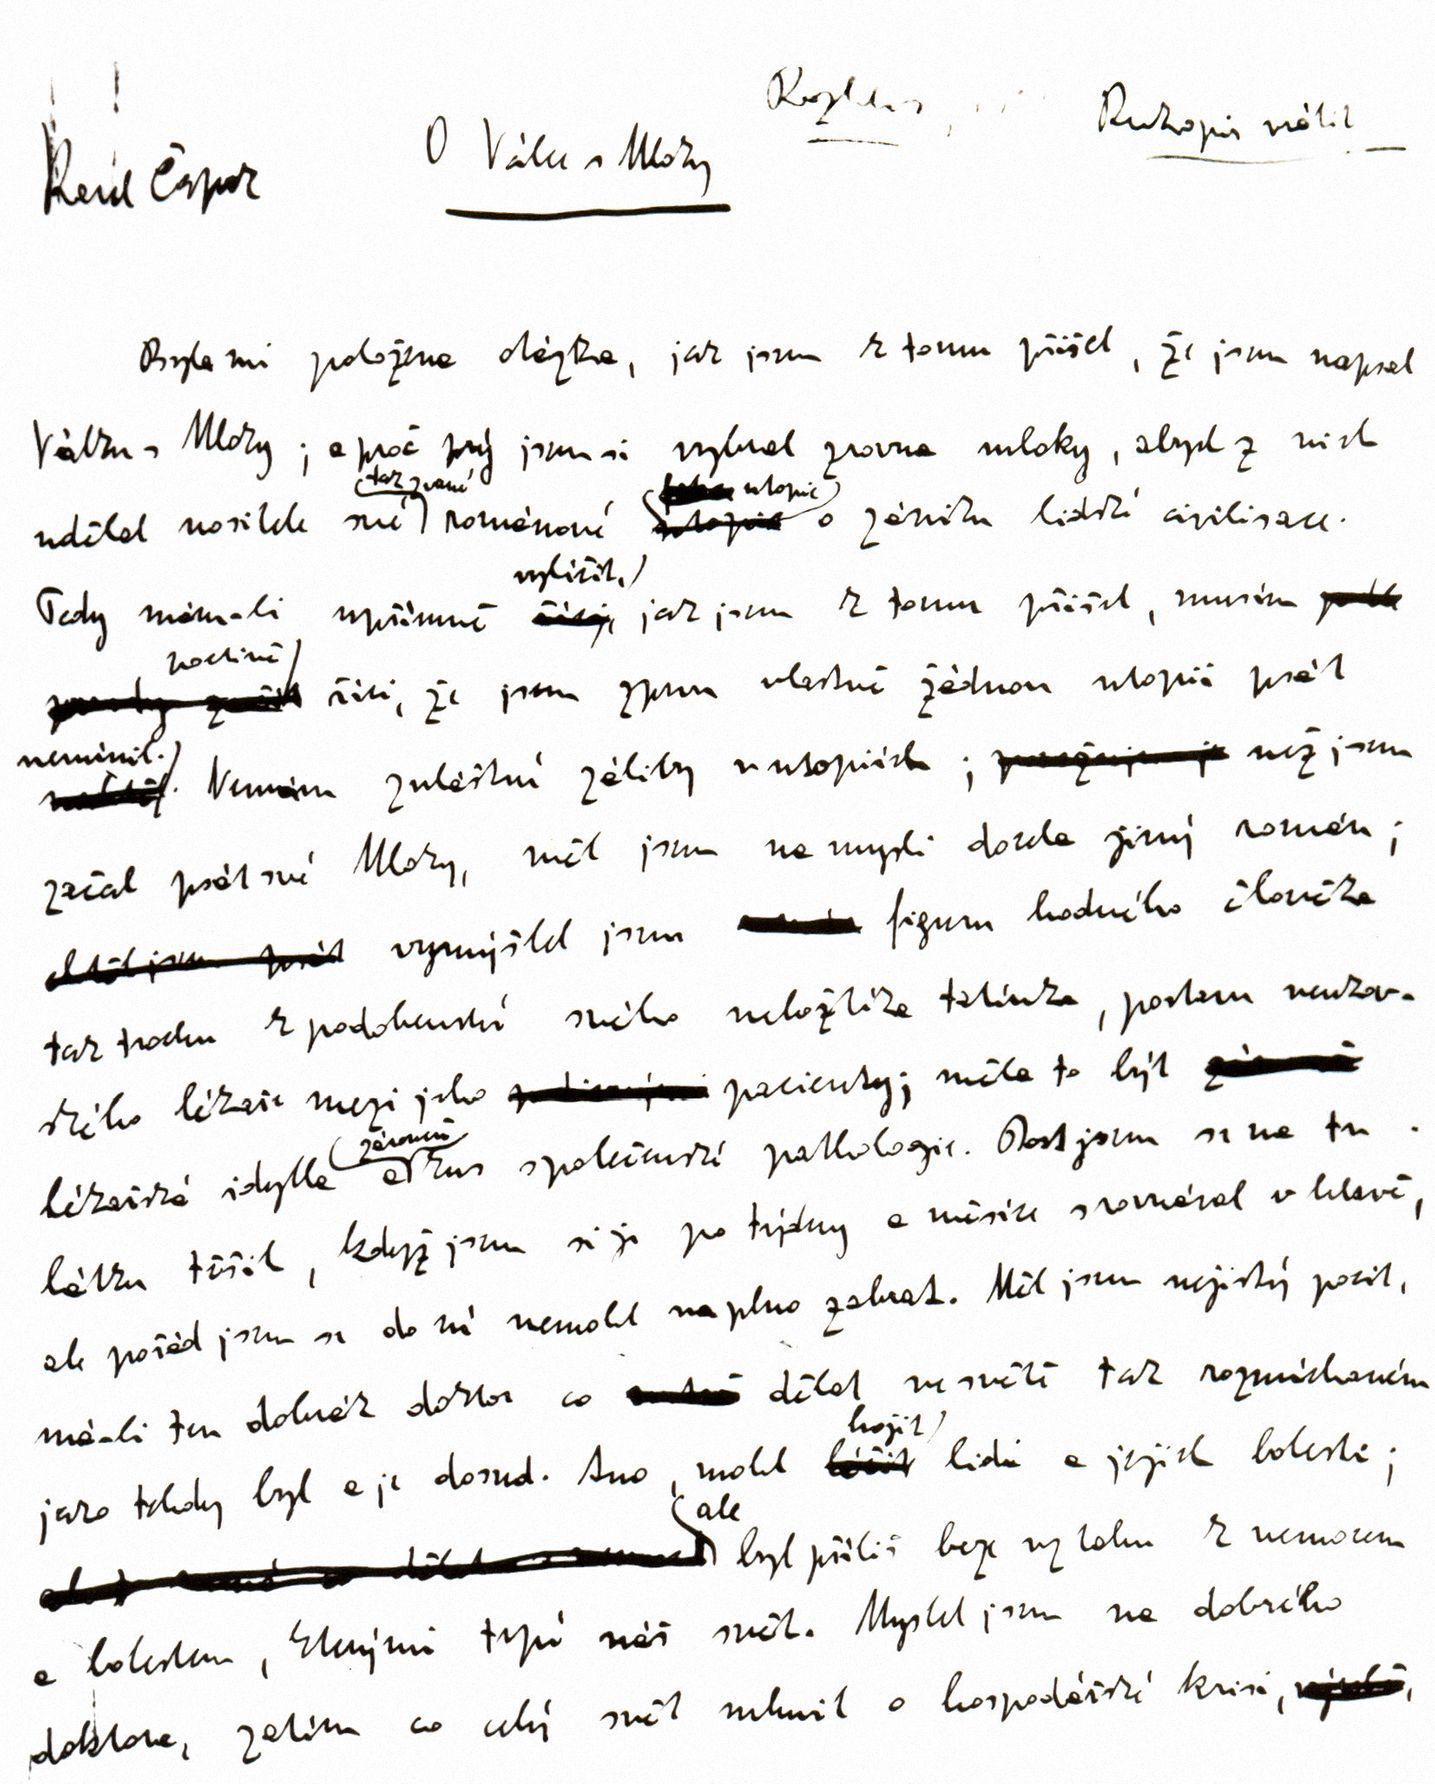 Karel Čapek
O Válce s Mloky
Rozhlas
Rukopis vrátit
Byla mi položena otázka, jak jsem k tomu přišel, že jsem napsal
Válku s Mloky; a proč prý jsem si vybral zrovna mloky, abych z nich
udělal nositele své (tak zvané) románové utopie o zániku lidské civilisace.
Tedy mám-li upřímně vylíčit, jak jsem k tomu přišel, musím
poctivě říci, že jsem zprvu vlastně žádnou utopii psát
nemínil. Nemám zvláštní záliby v utopiích; než jsem
začal psát své Mloky, měl jsem na mysli docela jiný román;
vymýšlel jsem figuru hodného člověka
tak trochu k podobenství svého nebožtíka tatínka, postavu venkov-
ského lékaře mezi jeho pacienty; měla to být
lékařská idylla a zároveň kus společenské pathologie. Dost jsem se na tu
látku těšil, když jsem si ji po týdny a měsíce srovnával v hlavě,
ale pořád jsem se do ní nemohl naplno zabrat. Měl jsem nejistý pocit,
má-li ten dobrák doktor co dělat ve světě tak rozmíchaném
jako tehdy byl a je dosud. Ano, mohl hojit lidi a jejich bolesti;
ale byl příliš beze vztahu k nemocem
a bolestem, kterými trpí náš svět. Myslel jsem na dobrého
doktora, zatím co celý svět mluvil o hospodářské krisi,